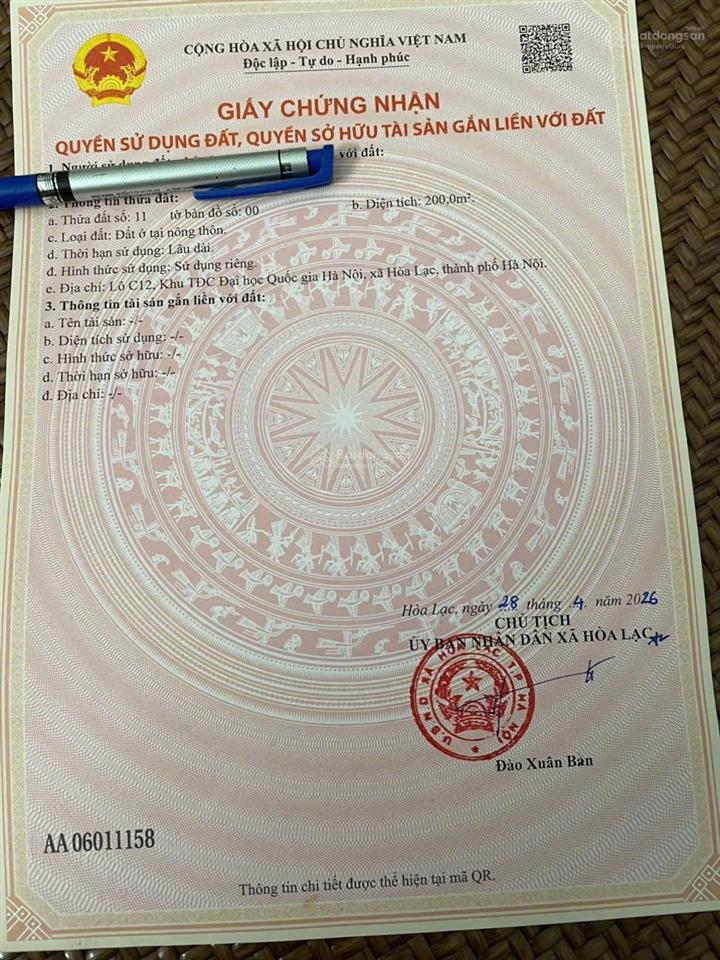 CỘNG HÒA XÃ HỘI CHỦ NGHĨA VIỆT NAM
Độc lập - Tự do - Hạnh phúc
GIẤY CHỨNG NHẬN
QUYỀN SỬ DỤNG ĐẤT, QUYỀN SỞ HỮU TÀI SẢN GẮN LIỀN VỚI ĐẤT
1. Người sử dụng đất với đất:
2. Thông tin thửa đất:
a. Thửa đất số: 11 tờ bản đồ số: 00 b. Diện tích: 200,0m².
c. Loại đất: Đất ở tại nông thôn.
d. Thời hạn sử dụng: Lâu dài.
đ. Hình thức sử dụng: Sử dụng riêng.
e. Địa chỉ: Lô C12, Khu TĐC Đại học Quốc gia Hà Nội, xã Hòa Lạc, thành phố Hà Nội.
3. Thông tin tài sản gắn liền với đất:
a. Tên tài sản: -/-
b. Diện tích sử dụng: -/-
c. Hình thức sở hữu: -/-
d. Thời hạn sở hữu: -/-
đ. Địa chỉ: -/-
Batdongsan
Hòa Lạc, ngày 28 tháng 4 năm 2026
CHỦ TỊCH
ỦY BAN NHÂN DÂN XÃ HÒA LẠC
U.B.N.D XÃ HÒA LẠC T.P HÀ NỘI
Đào Xuân Bàn
AA 06011158
Thông tin chi tiết được thể hiện tại mã QR.
Batdongsan.com.vn
by PropertyGuru